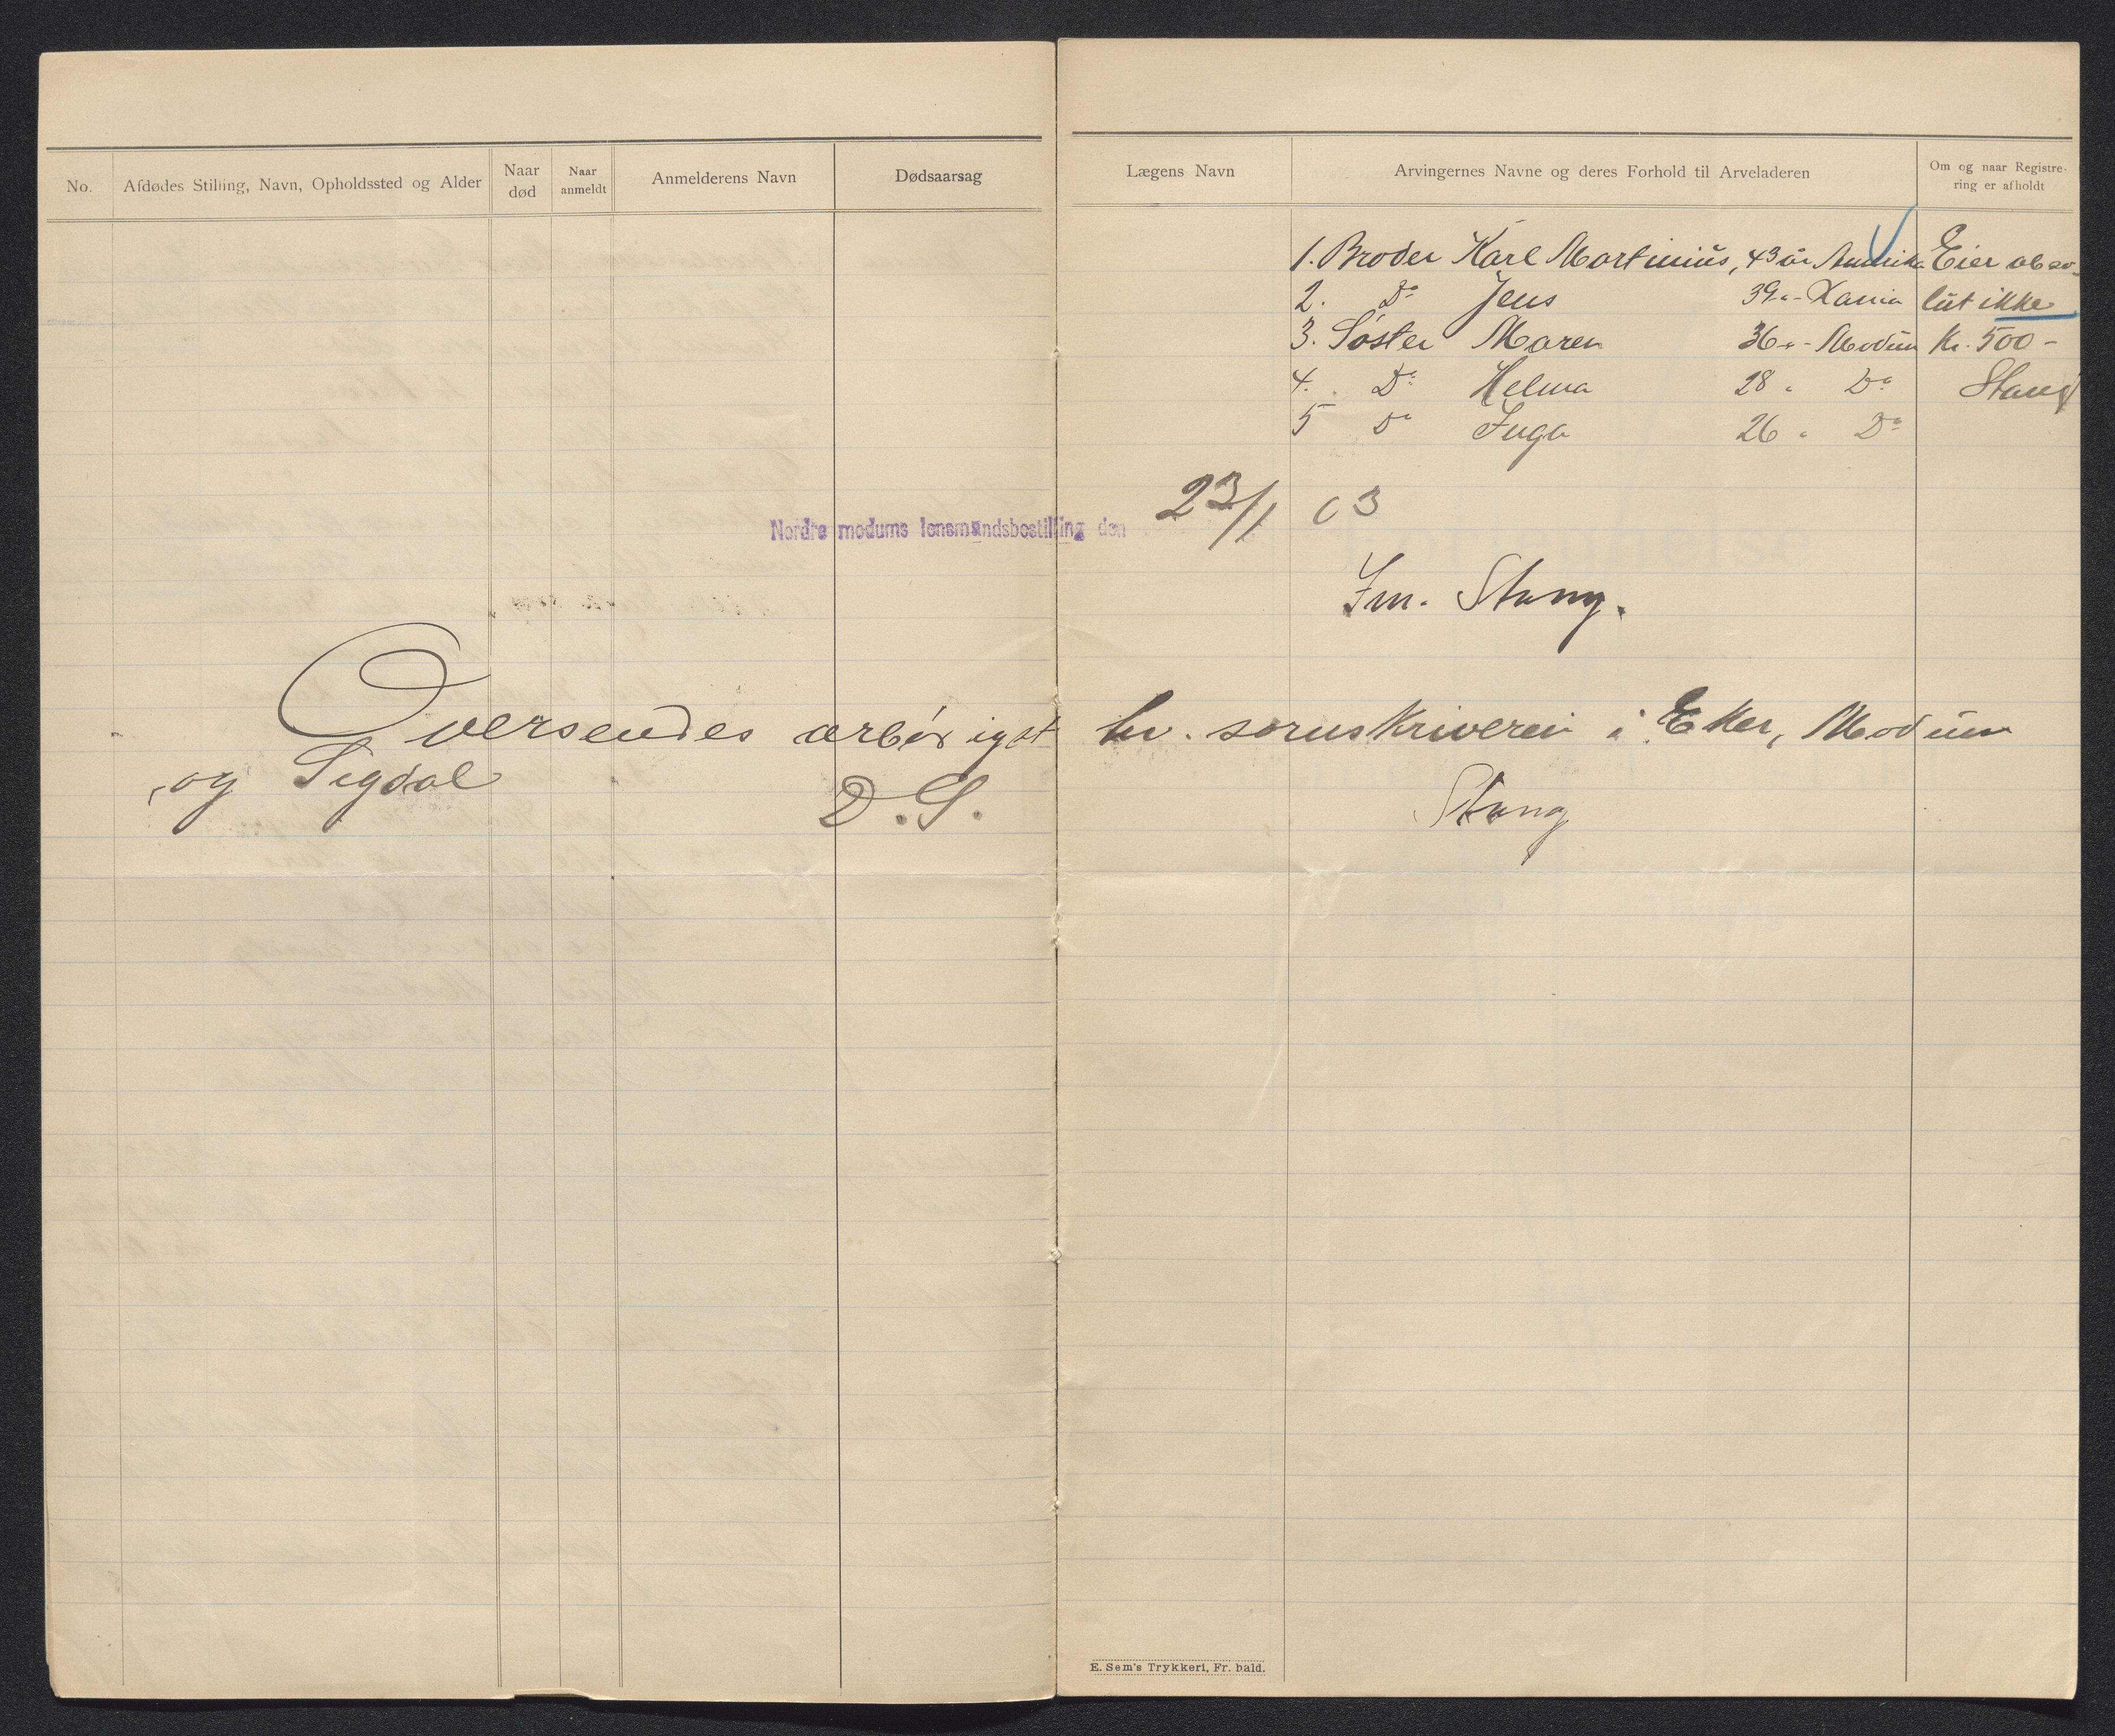 No.
Afdødes Stilling, Navn, Opholdssted og Alder
Naar død
Naar anmeldt
Anmelderens Navn
Dødsaarsag
Lægens Navn
Arvingernes Navne og deres Forhold til Arveladeren
Om og naar Registre-
ring er afholdt
1. Broder Karl Martinius, 43 år Amerika Eier abso-
2. Do Jens 39 " - Xania lut ikke
3. Søster Maren 36 " - Modum Kr. 500 -
4. Do Helma 28 " Do Stang
5 Do Inga 26 " Do
Nordre modums lensmandsbestilling den 23/1 03
Im. Stang.
Oversendes ærbødigst hr. sorenskriveren i Eker, Modum
og Sigdal
D. S. Stang
E. Sem's Trykkeri, Fr. hald.